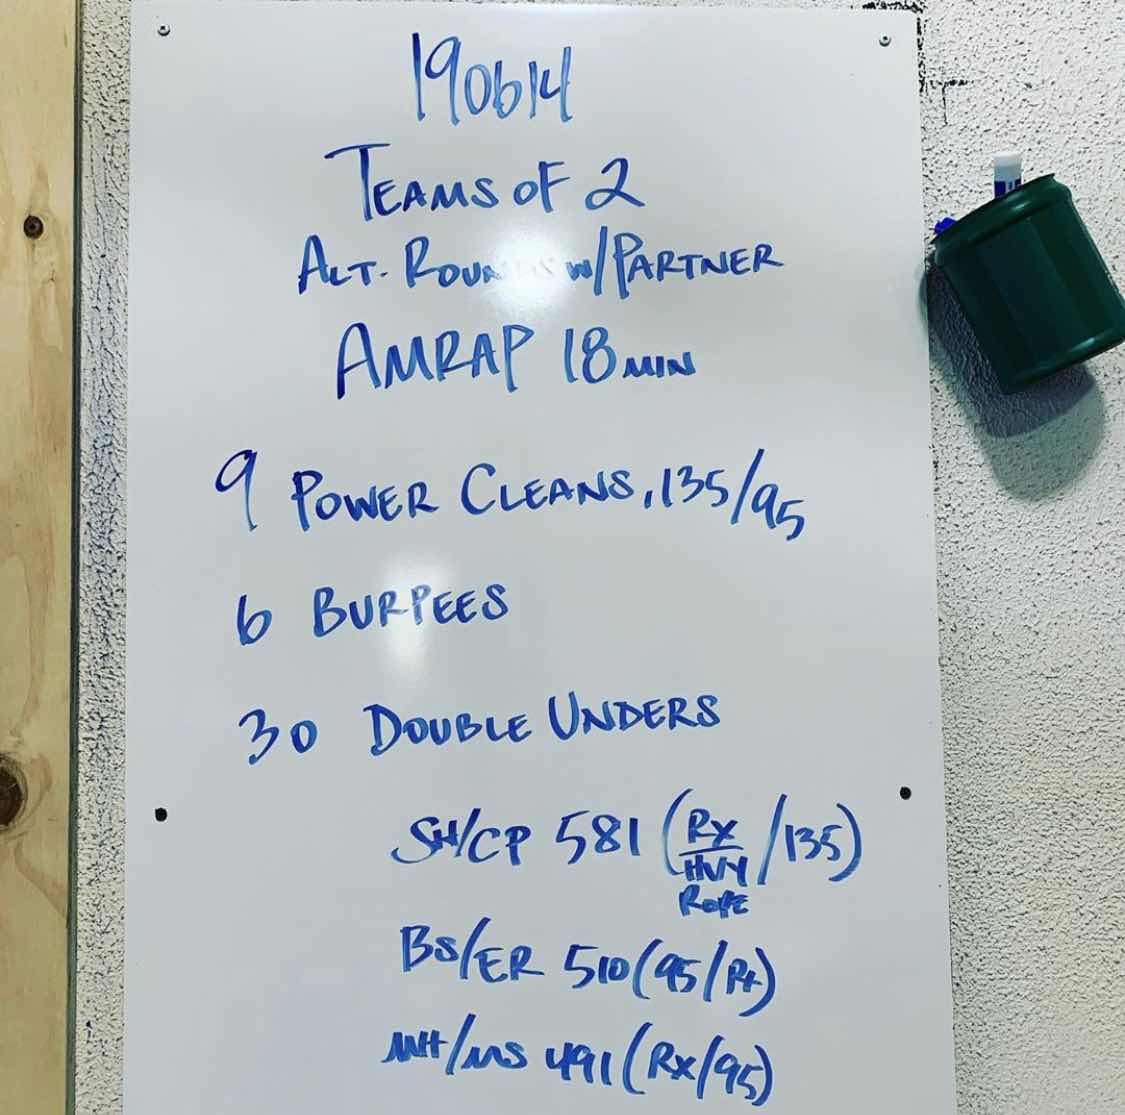 190614
TEAMS OF 2
ALT. ROUNDS W/PARTNER
AMRAP 18 MIN
9 POWER CLEANS, 135/95
6 BURPEES
30 DOUBLE UNDERS
SH/CP 581 (RX/135)
HVY
ROPE
BS/ER 510 (95/RX)
MH/MS 491 (RX/95)